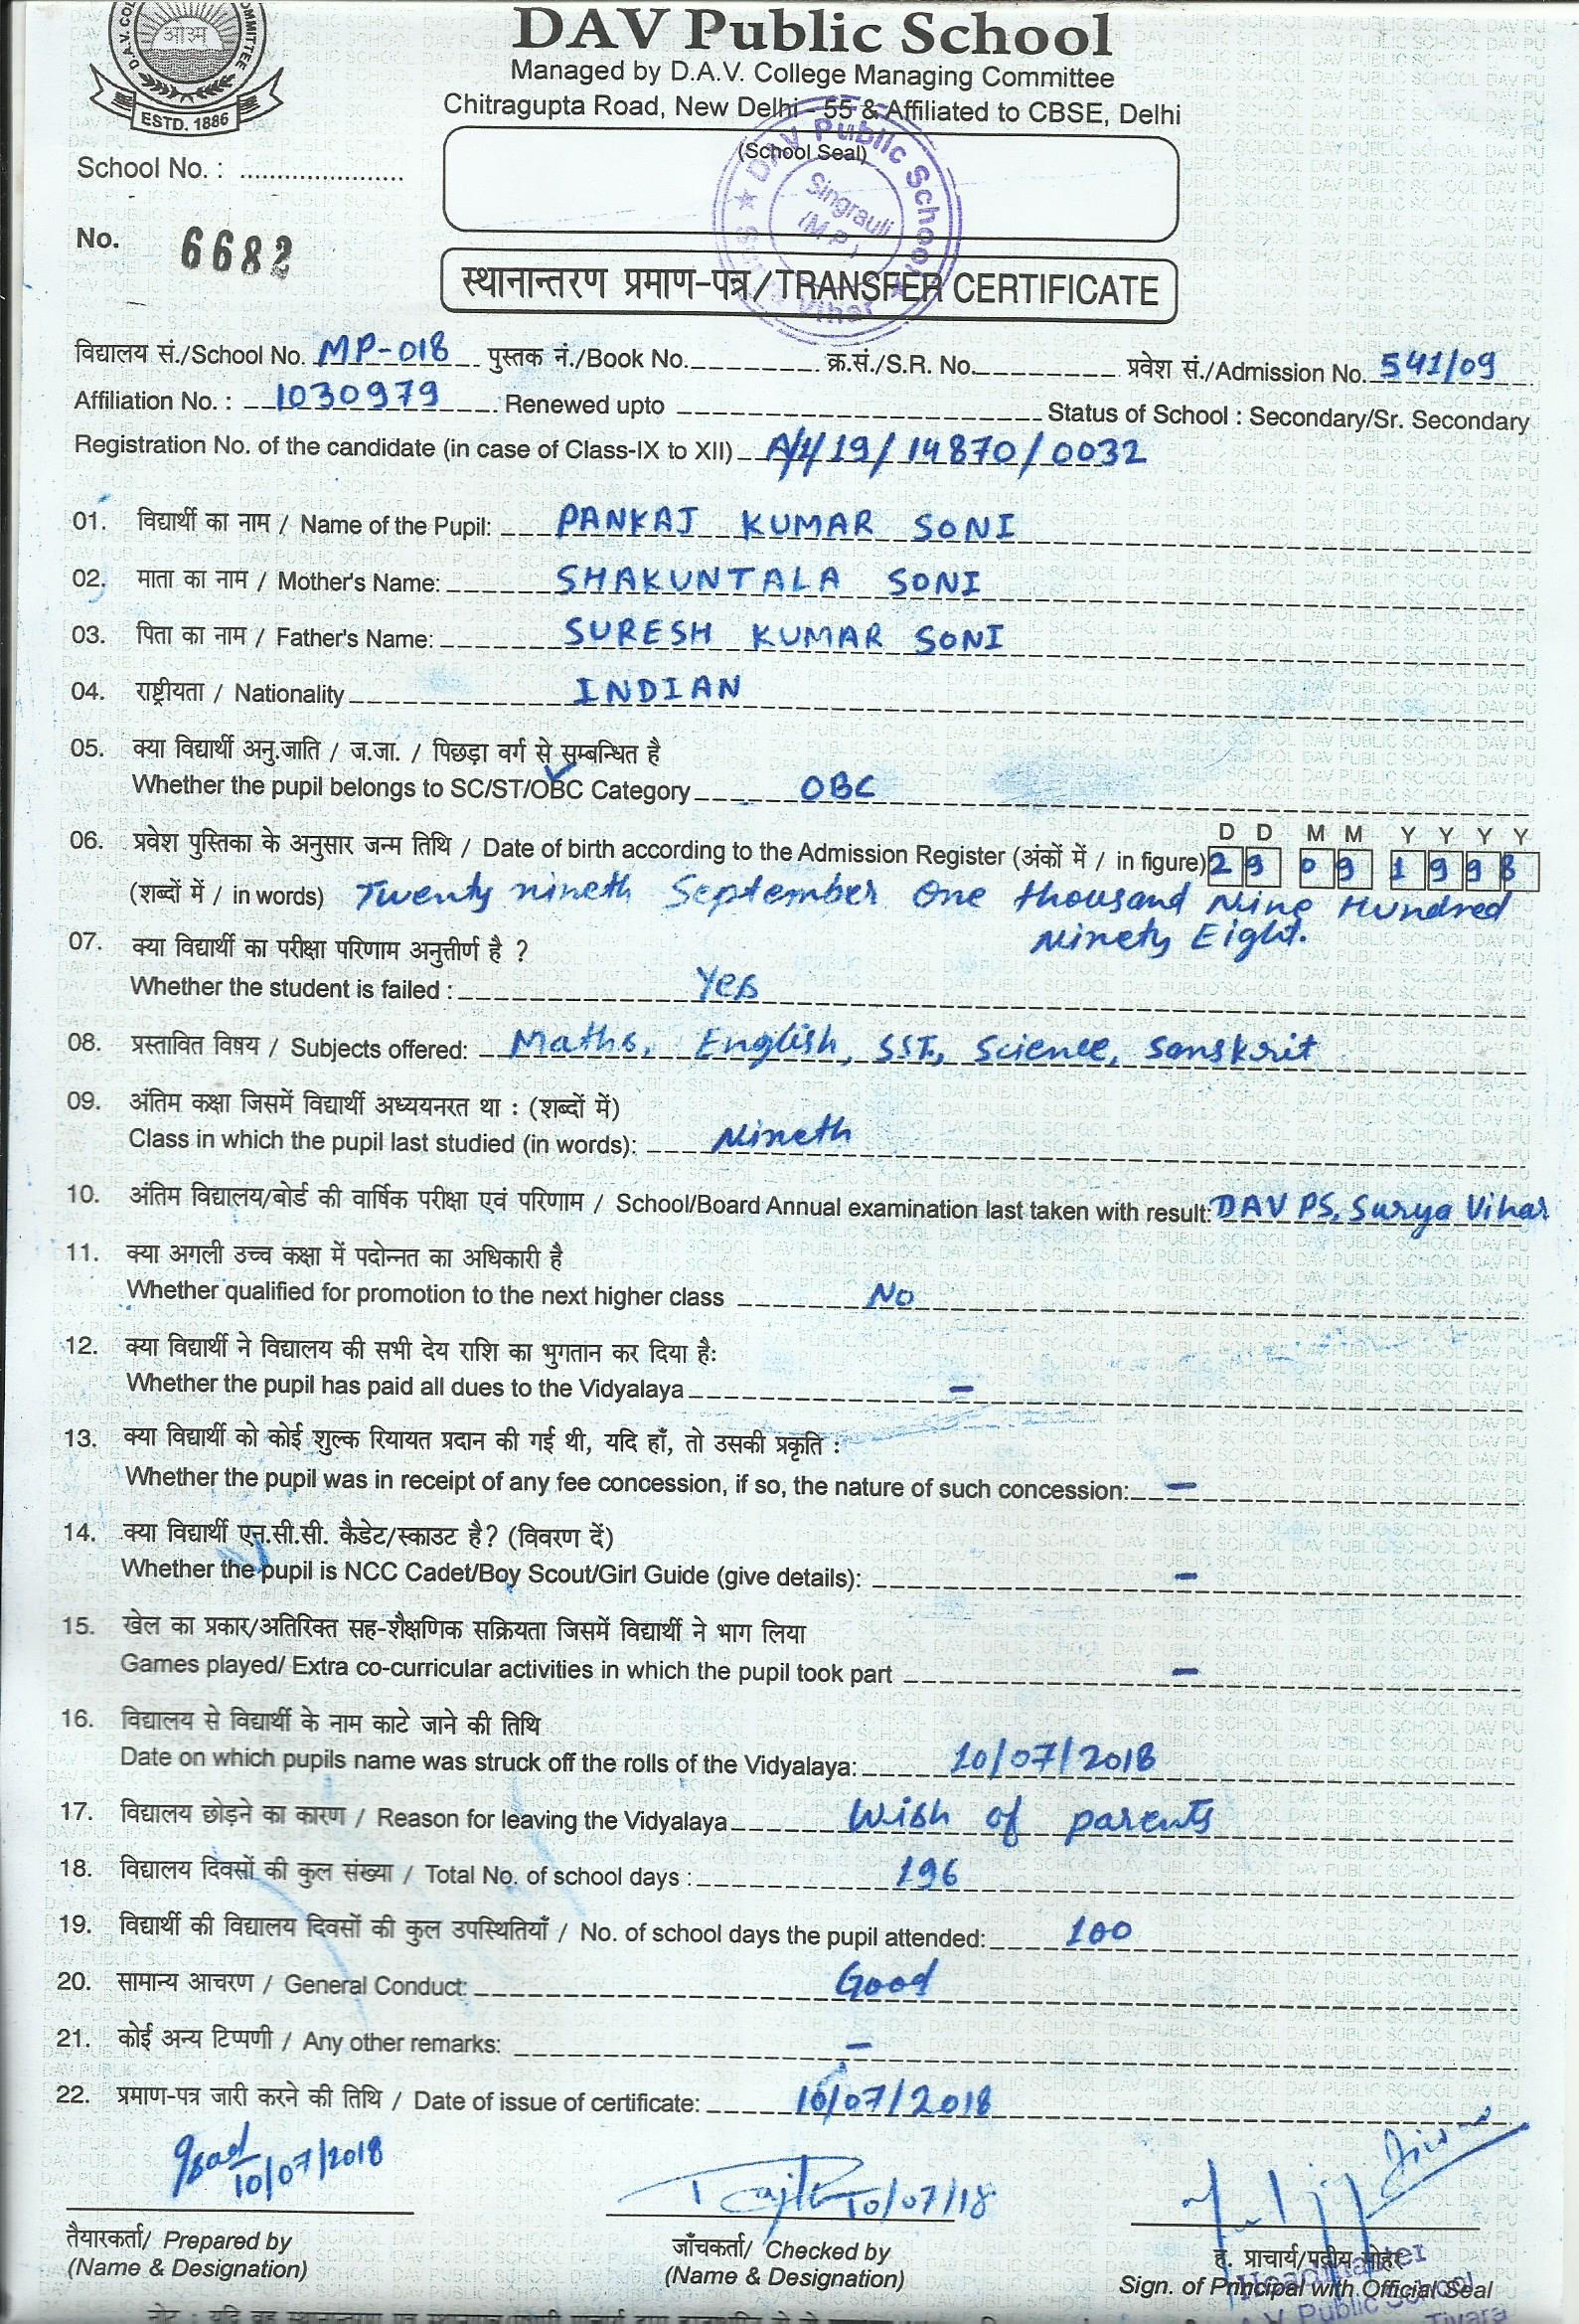 ओ३म्
ESTD. 1886
DAV Public School
Managed by D.A.V. College Managing Committee
Chitragupta Road, New Delhi - 55 & Affiliated to CBSE, Delhi
(School Seal)
DAV Public School
Singrauli
(M.P.)
Vihar
School No. : ......................
No. 6682
स्थानान्तरण प्रमाण-पत्र/TRANSFER CERTIFICATE
विद्यालय सं./School No. MP-018 पुस्तक नं./Book No. क्र.सं./S.R. No. प्रवेश सं./Admission No. 541/09
Affiliation No. : 1030979 Renewed upto Status of School : Secondary/Sr. Secondary
Registration No. of the candidate (in case of Class-IX to XII) A/1/19/14870/0032
01. विद्यार्थी का नाम / Name of the Pupil: PANKAJ KUMAR SONI
02. माता का नाम / Mother's Name: SHAKUNTALA SONI
03. पिता का नाम / Father's Name: SURESH KUMAR SONI
04. राष्ट्रीयता / Nationality INDIAN
05. क्या विद्यार्थी अनु.जाति / ज.जा. / पिछड़ा वर्ग से सम्बन्धित है
Whether the pupil belongs to SC/ST/OBC Category OBC
D D M M Y Y Y Y
06. प्रवेश पुस्तिका के अनुसार जन्म तिथि / Date of birth according to the Admission Register (अंकों में / in figure) 2 9 0 9 1 9 9 8
(शब्दों में / in words) Twenty nineth September One thousand Nine Hundred
Ninety Eight.
07. क्या विद्यार्थी का परीक्षा परिणाम अनुत्तीर्ण है ?
Whether the student is failed : Yes
08. प्रस्तावित विषय / Subjects offered: Maths, English, SST, Science, Sanskrit
09. अंतिम कक्षा जिसमें विद्यार्थी अध्ययनरत था : (शब्दों में)
Class in which the pupil last studied (in words): Nineth
10. अंतिम विद्यालय/बोर्ड की वार्षिक परीक्षा एवं परिणाम / School/Board Annual examination last taken with result: DAV PS, Surya Vihar
11. क्या अगली उच्च कक्षा में पदोन्नत का अधिकारी है
Whether qualified for promotion to the next higher class No
12. क्या विद्यार्थी ने विद्यालय की सभी देय राशि का भुगतान कर दिया है:
Whether the pupil has paid all dues to the Vidyalaya –
13. क्या विद्यार्थी को कोई शुल्क रियायत प्रदान की गई थी, यदि हाँ, तो उसकी प्रकृति :
Whether the pupil was in receipt of any fee concession, if so, the nature of such concession: –
14. क्या विद्यार्थी एन.सी.सी. कैडेट/स्काउट है? (विवरण दें)
Whether the pupil is NCC Cadet/Boy Scout/Girl Guide (give details): –
15. खेल का प्रकार/अतिरिक्त सह-शैक्षणिक सक्रियता जिसमें विद्यार्थी ने भाग लिया
Games played/ Extra co-curricular activities in which the pupil took part –
16. विद्यालय से विद्यार्थी के नाम काटे जाने की तिथि
Date on which pupils name was struck off the rolls of the Vidyalaya: 10/07/2018
17. विद्यालय छोड़ने का कारण / Reason for leaving the Vidyalaya Wish of parents
18. विद्यालय दिवसों की कुल संख्या / Total No. of school days : 196
19. विद्यार्थी की विद्यालय दिवसों की कुल उपस्थितियाँ / No. of school days the pupil attended: 100
20. सामान्य आचरण / General Conduct: Good
21. कोई अन्य टिप्पणी / Any other remarks: –
22. प्रमाण-पत्र जारी करने की तिथि / Date of issue of certificate: 10/07/2018
10/07/2018
10/07/18
तैयारकर्ता/ Prepared by
(Name & Designation)
जाँचकर्ता/ Checked by
(Name & Designation)
ह. प्राचार्य/पदीय मोहर
Sign. of Principal with Official Seal
Headmaster
V Public School